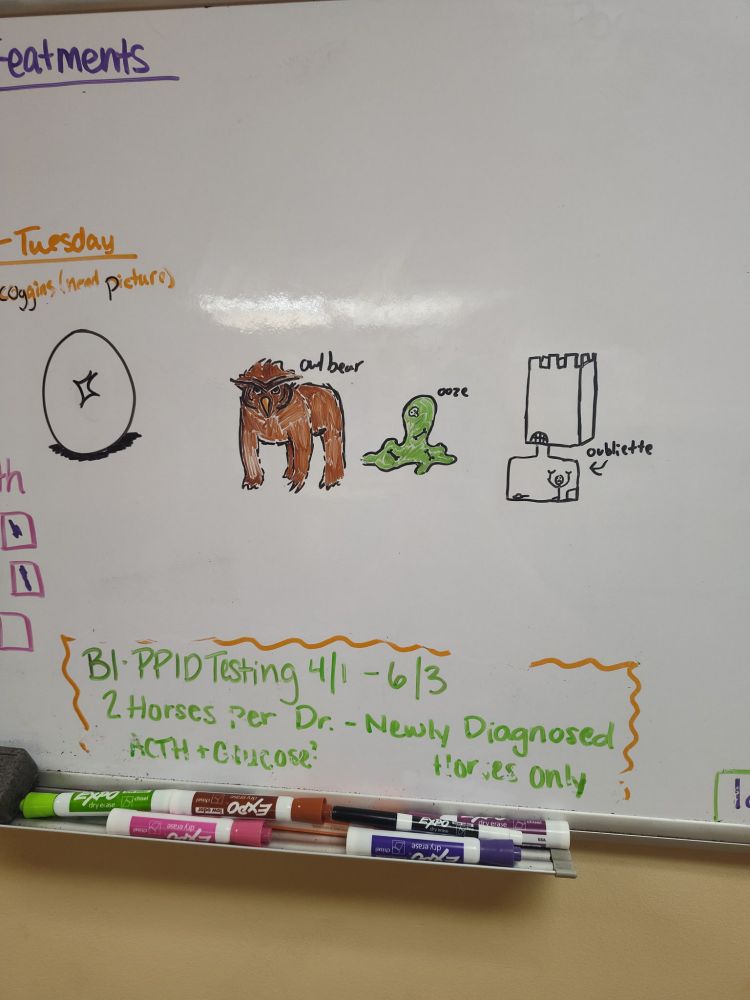 eatments
-Tuesday
coggins (need picture)
owl bear
ooze
oubliette
th
BI-PPID Testing 4/1 - 6/3
2 Horses Per Dr. - Newly Diagnosed
ACTH + Glucose? Horses Only
EXPO dry erase chisel
EXPO low odor
EXPO dry erase
EXPO dry erase chisel
EXPO dry erase chisel